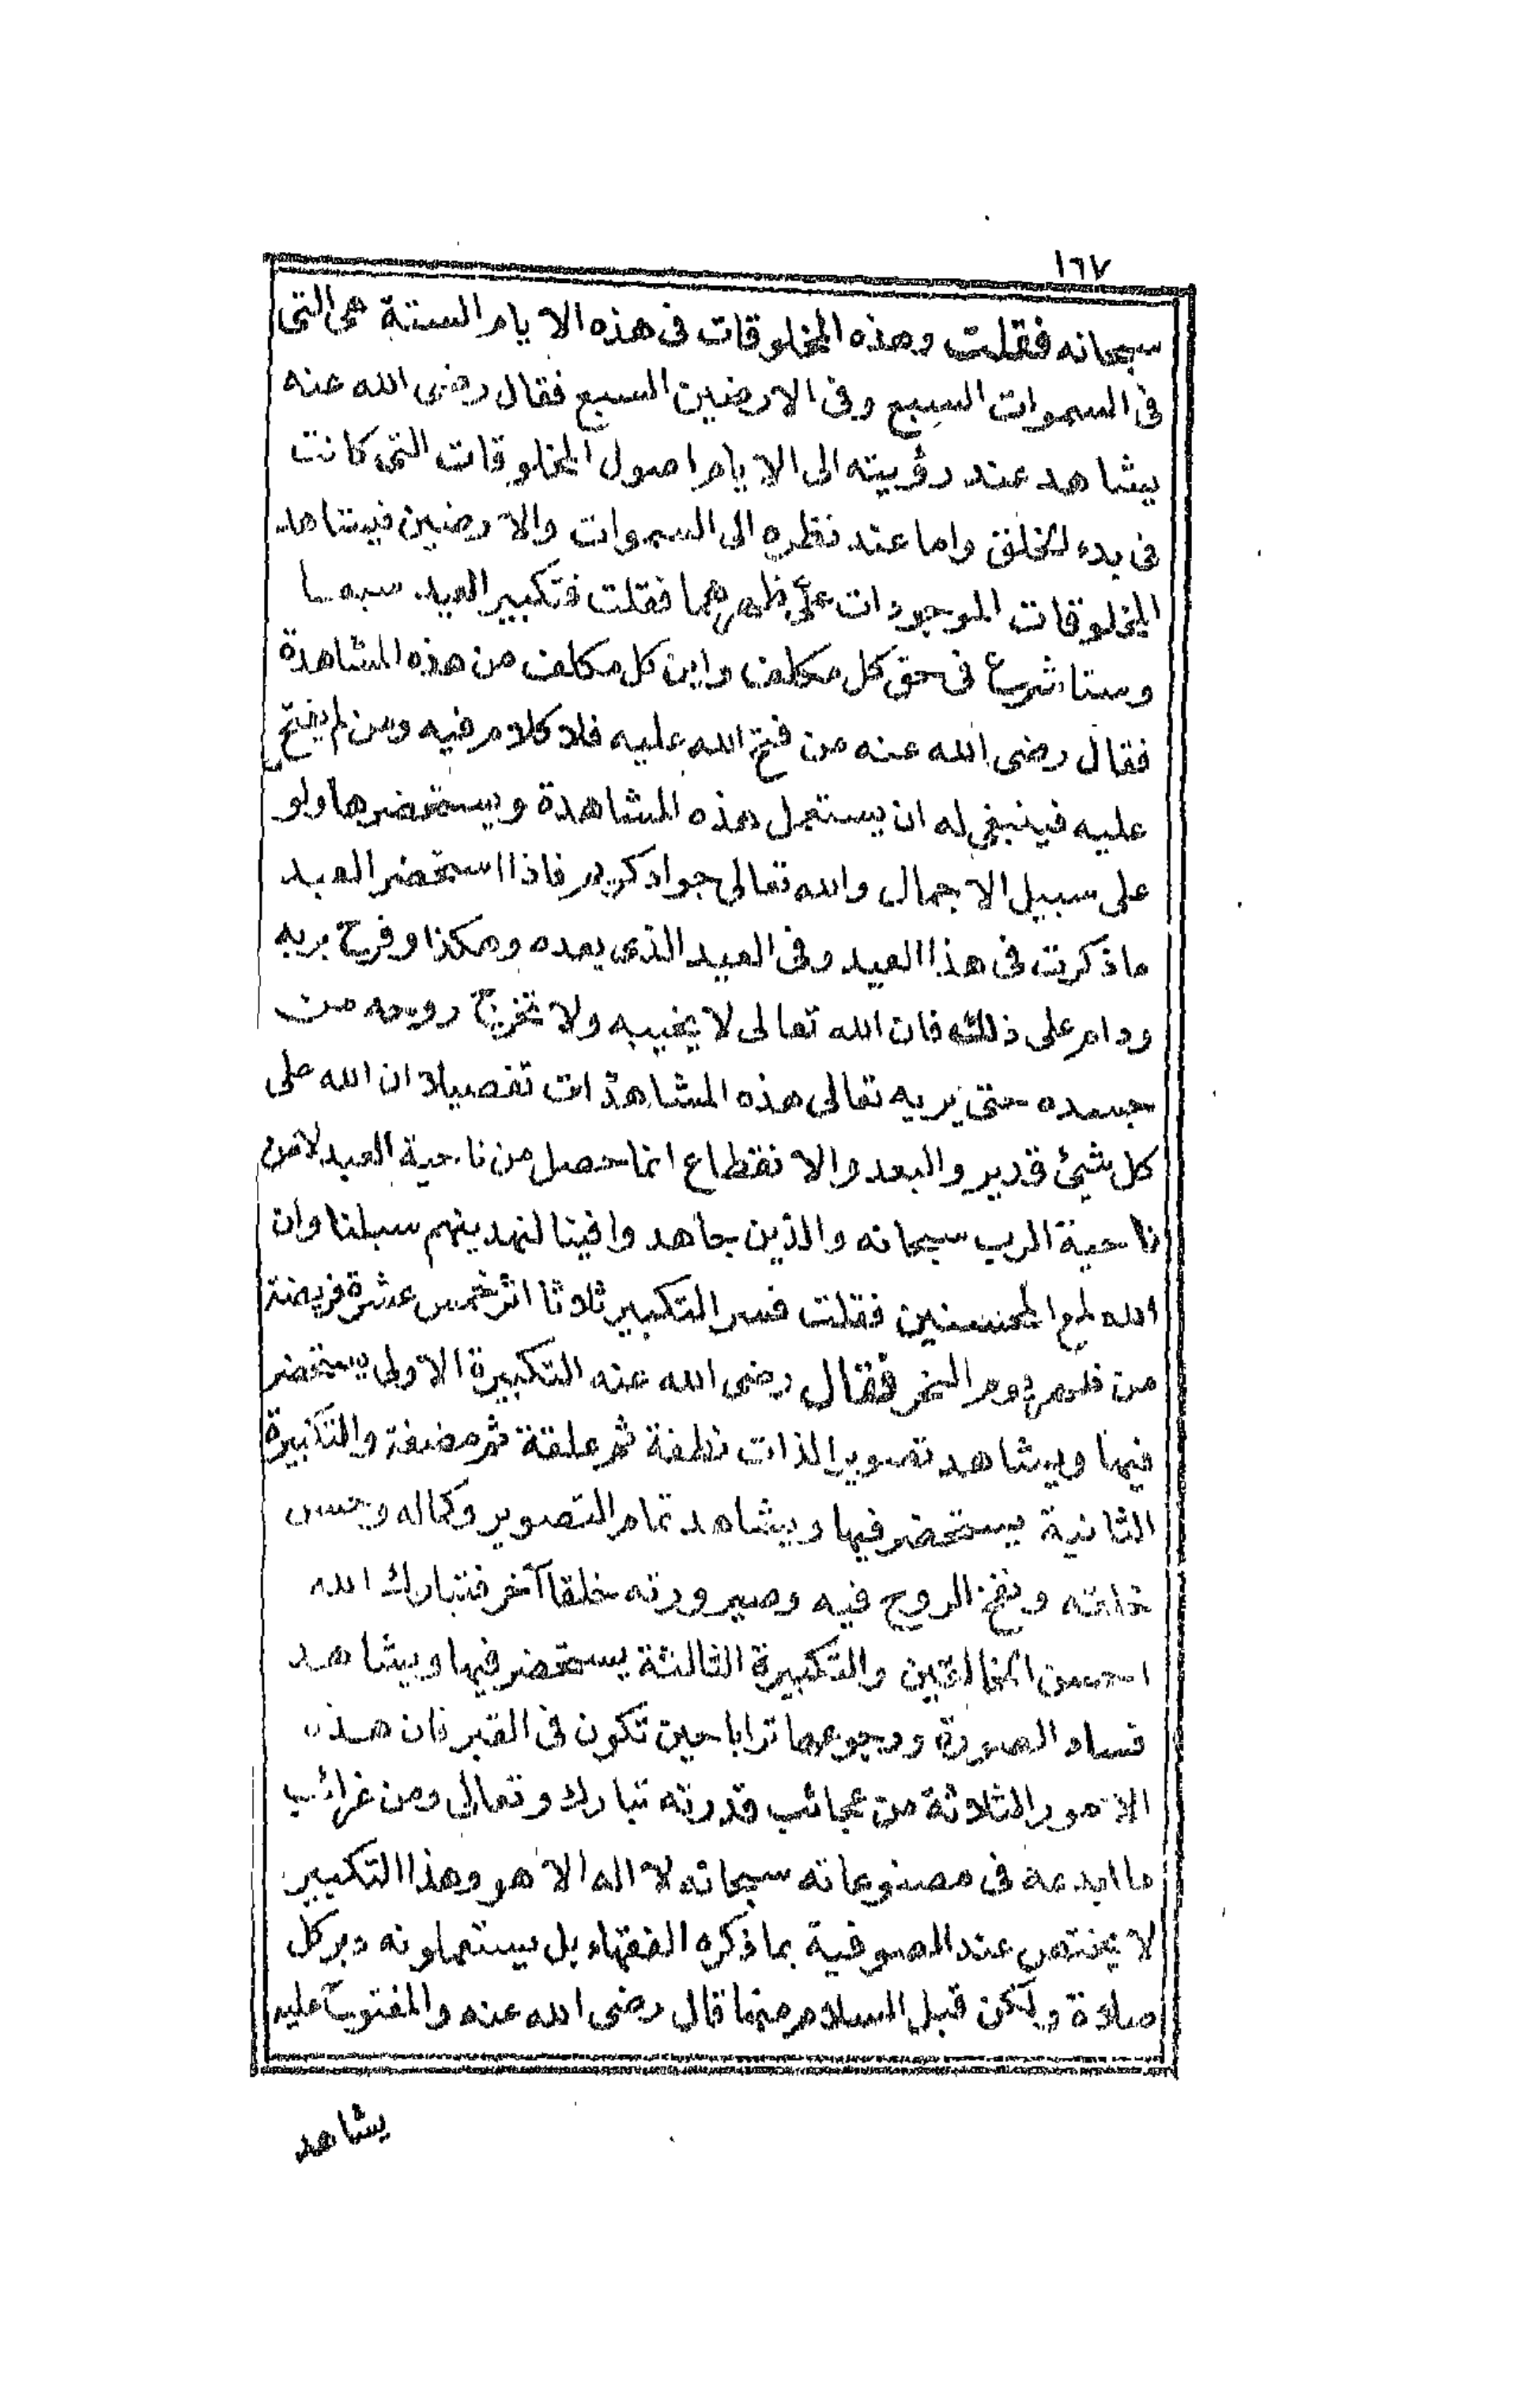 ١٦٧
سبحانه فقلت وهذه المخلوقات فى هذه الايام الستة هى التى
فى السموات السبع وفى الارضين السبع فقال رضى الله عنه
يشاهد عند رؤيته الى الايام اصول المخلوقات التى كانت
فى بدء الخلق واما عند نظره الى السموات والارضين فيشاهد
المخلوقات الموجودات على ظهرهما فقلت فتكبير العيد سبعا
وستا شرع فى حق كل مكلف واين كل مكلف من هذه المشاهدة
فقال رضى الله عنه من فتح الله عليه فلا كلام فيه ومن لم يفتح
عليه فينبغى له ان يستعمل هذه المشاهدة ويستحضرها ولو
على سبيل الاجمال والله تعالى جواد كريم فاذا استحضر العبد
ما ذكرت فى هذا العيد وفى العيد الذى بعده وهكذا وفرح بربه
ودام على ذلك فان الله تعالى لا يخيبه ولا تخرج روحه من
جسده حتى يريه تعالى هذه المشاهدات تفصيلا ان الله على
كل شيئ قدير والبعد والانقطاع انما حصل من ناحية العبد لا من
ناحية الرب سبحانه والذين جاهدوا فينا لنهدينهم سبلنا وان
الله لمع المحسنين فقلت فسر التكبير ثلاثا اثر خمس عشرة فريضة
من ظهر يوم النحر فقال رضى الله عنه التكبيرة الاولى يستحضر
فيها ويشاهد تصوير الذات نطفة ثم علقة ثم مضغة والتكبيرة
الثانية يستحضر فيها ويشاهد تمام التصوير وكماله وحسن
خلقته ونفخ الروح فيه وصيرورته خلقا آخر فتبارك الله
احسن الخالقين والتكبيرة الثالثة يستحضر فيها ويشاهد
فساد الصورة ورجوعها ترابا حين تكون فى القبر فان هذه
الامور الثلاثة من عجائب قدرته تبارك وتعالى ومن غرائب
ما ابدعه فى مصنوعاته سبحانه لا اله الا هو وهذا التكبير
لا يختص عند الصوفية بما ذكره الفقهاء بل يستعملونه دبر كل
صلاة ولكن قبل السلام منها قال رضى الله عنه والمفتوح عليه
يشاهد